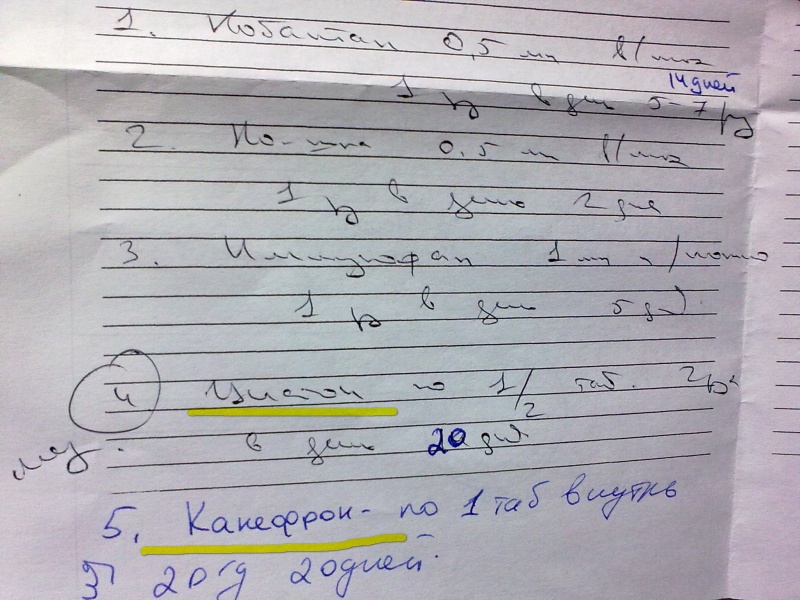 1. Кобактан 0,5 мл в/мыш
14 дней
1 р в день 5-7 
2. Но-шпа 0,5 мл в/мыш
1 р в день 2 дня
3. Иммунофан 1 мл п/кожно
1 р в день 5 дн
4 Уметон по 1/2 таб. 2 р
в день 20 дня
5. Канефрон - по 1 таб внутрь
20 дней.